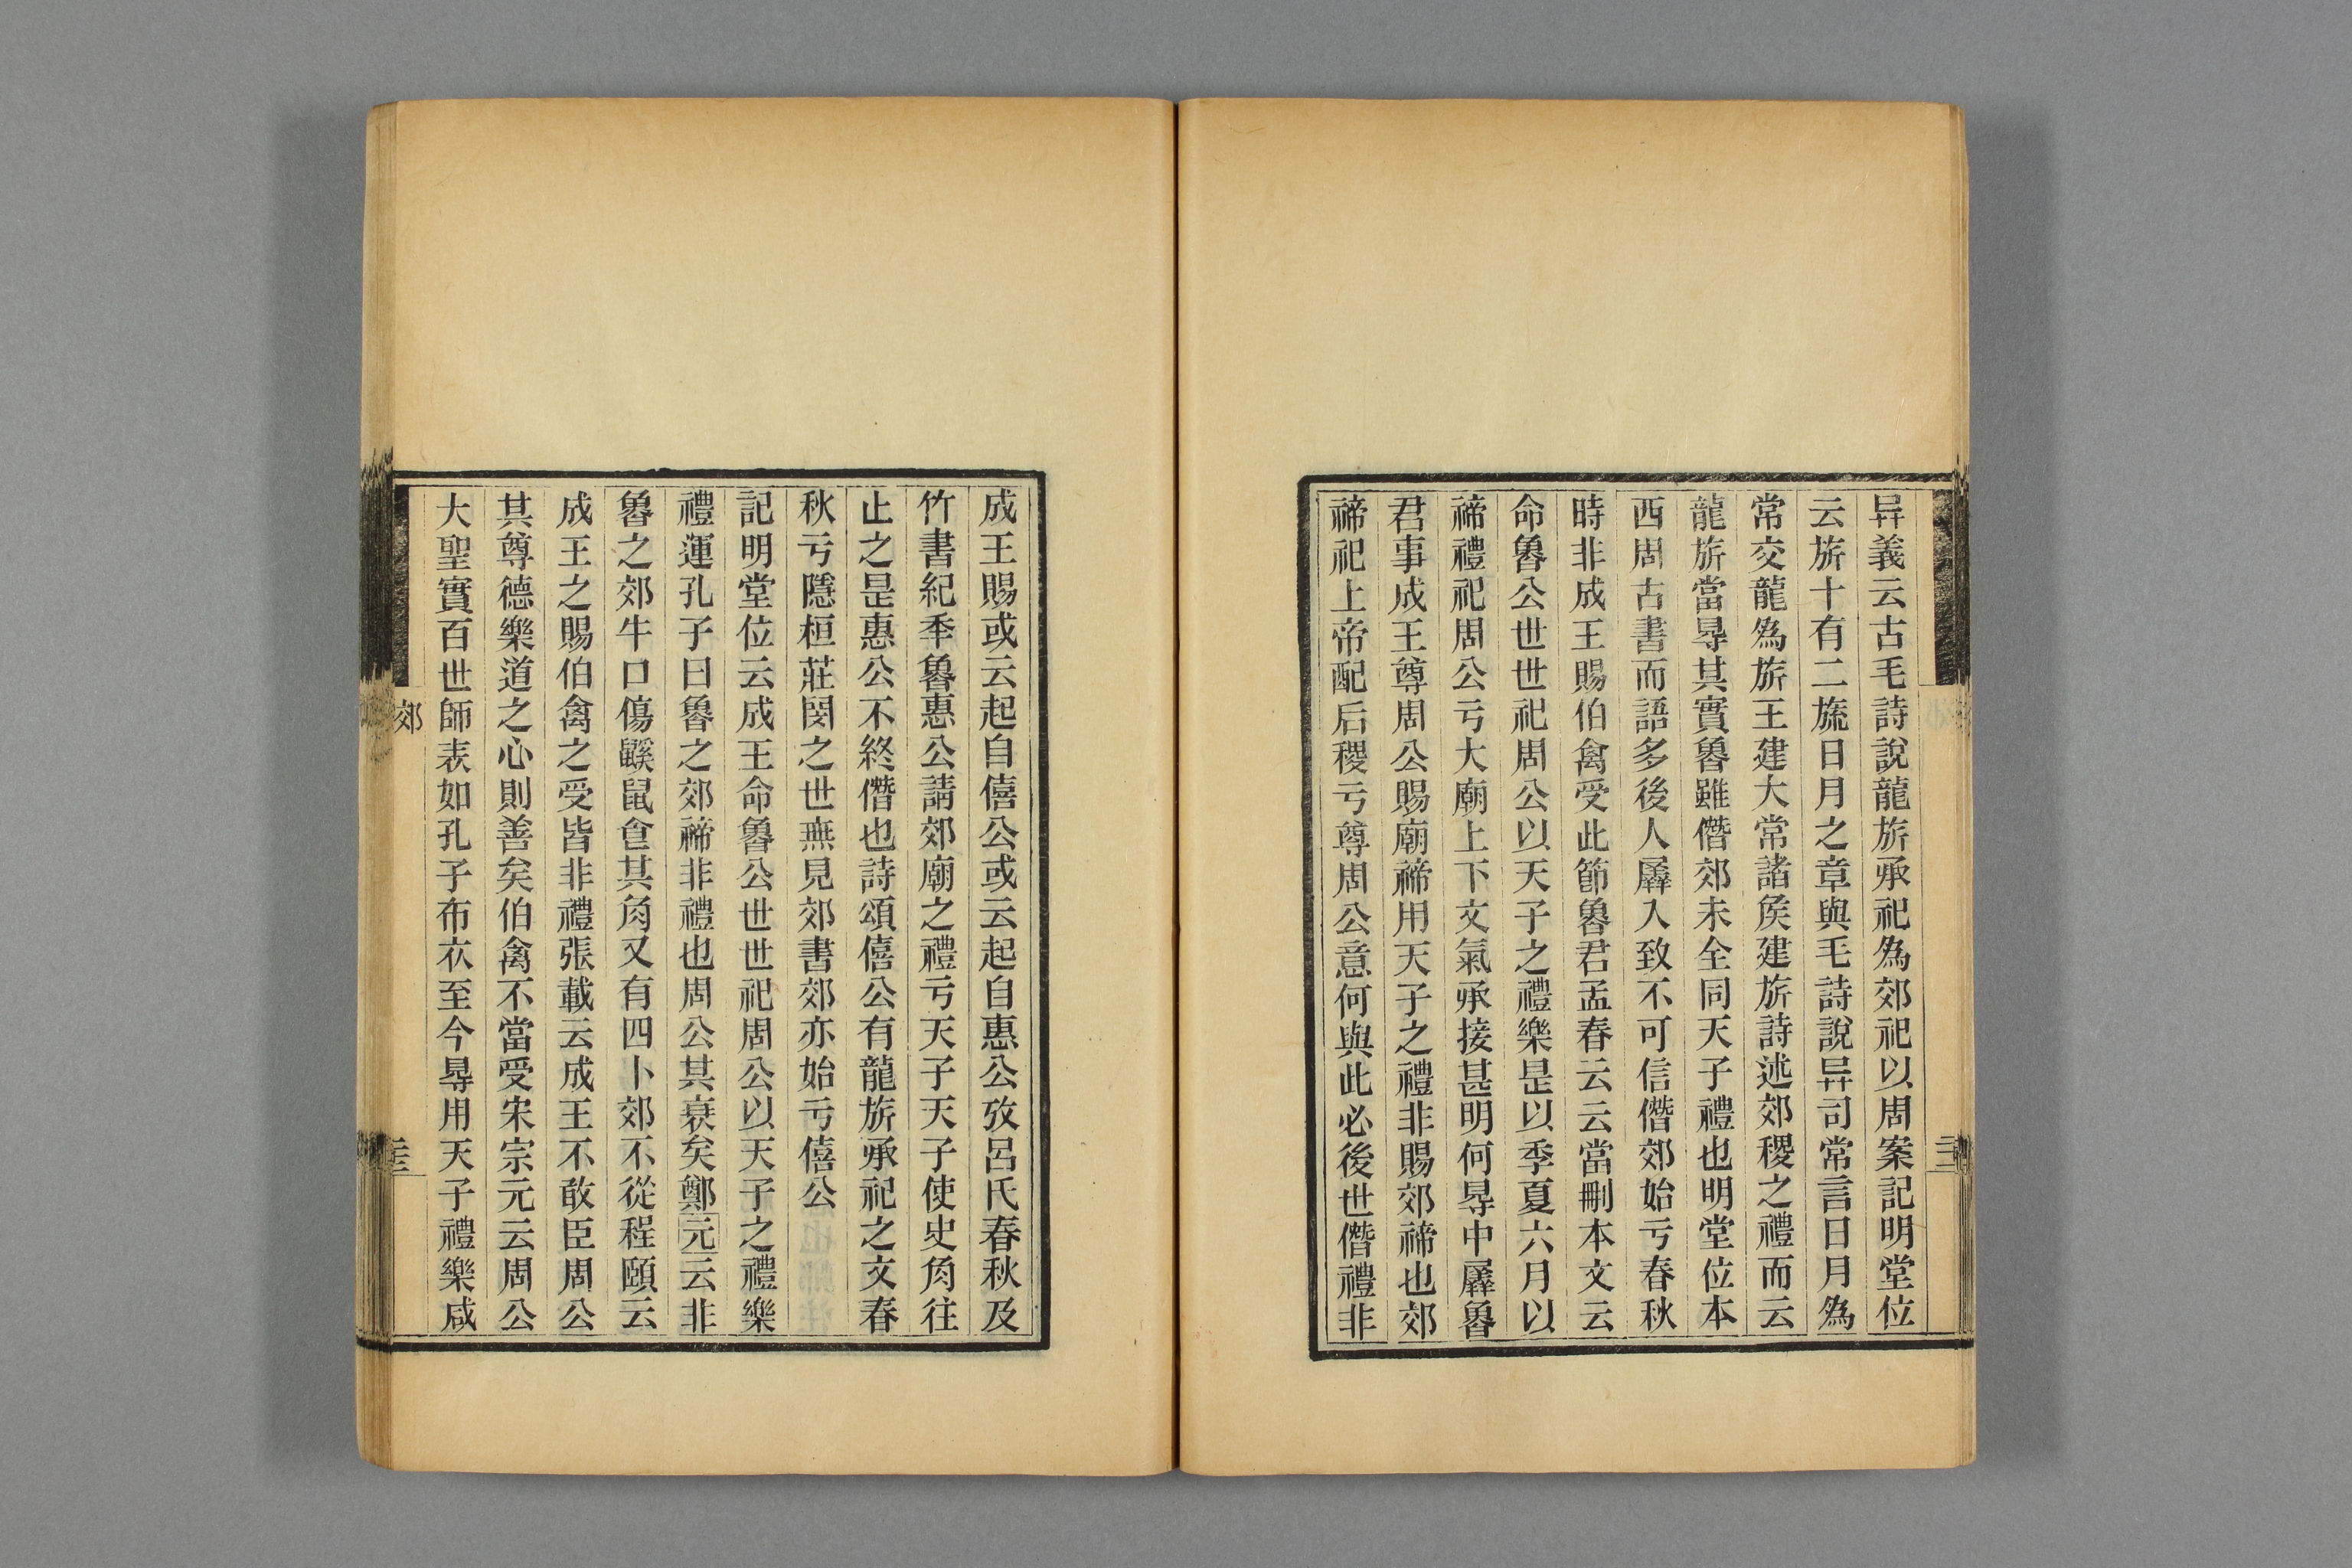 异義云古毛詩說龍旂承祀爲郊祀以周案記明堂位
云旂十有二旒日月之章與毛詩說异司常言日月爲
常交龍爲旂王建大常諸矦建旂詩述郊稷之禮而云
龍旂當㝵其實魯雖僭郊未全同天子禮也明堂位本
西周古書而語多後人羼入致不可信僭郊始亏春秋
時非成王賜伯禽受此節魯君孟春云云當刪本文云
命魯公世世祀周公以天子之禮樂是以季夏六月以
禘禮祀周公亏大廟上下文氣承接甚明何㝵中羼魯
君事成王尊周公賜廟禘用天子之禮非賜郊禘也郊
禘祀上帝配后稷亏尊周公意何與此必後世僭禮非
成王賜或云起自僖公或云起自惠公攷呂氏春秋及
竹書紀秊魯惠公請郊廟之禮亏天子天子使史角往
止之是惠公不終僭也詩頌僖公有龍旂承祀之文春
秋亏隱桓莊閔之世無見郊書郊亦始亏僖公
記明堂位云成王命魯公世世祀周公以天子之禮樂
禮運孔子曰魯之郊禘非禮也周公其衰矣鄭元云非
魯之郊牛口傷鼷鼠食其角又有四卜郊不從程頤云
成王之賜伯禽之受皆非禮張載云成王不敢臣周公
其尊德樂道之心則善矣伯禽不當受宋宗元云周公
大聖實百世師表如孔子布衣至今㝵用天子禮樂咸
郊